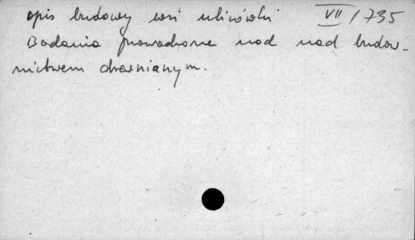 opis budowy wsi ulicówki VII/735
Badania prowadzone nad nad budow-
nictwem drewnianym.